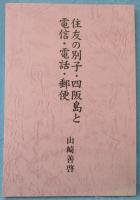 住友の別子・四阪島と
電信・電話・郵便
山崎善啓